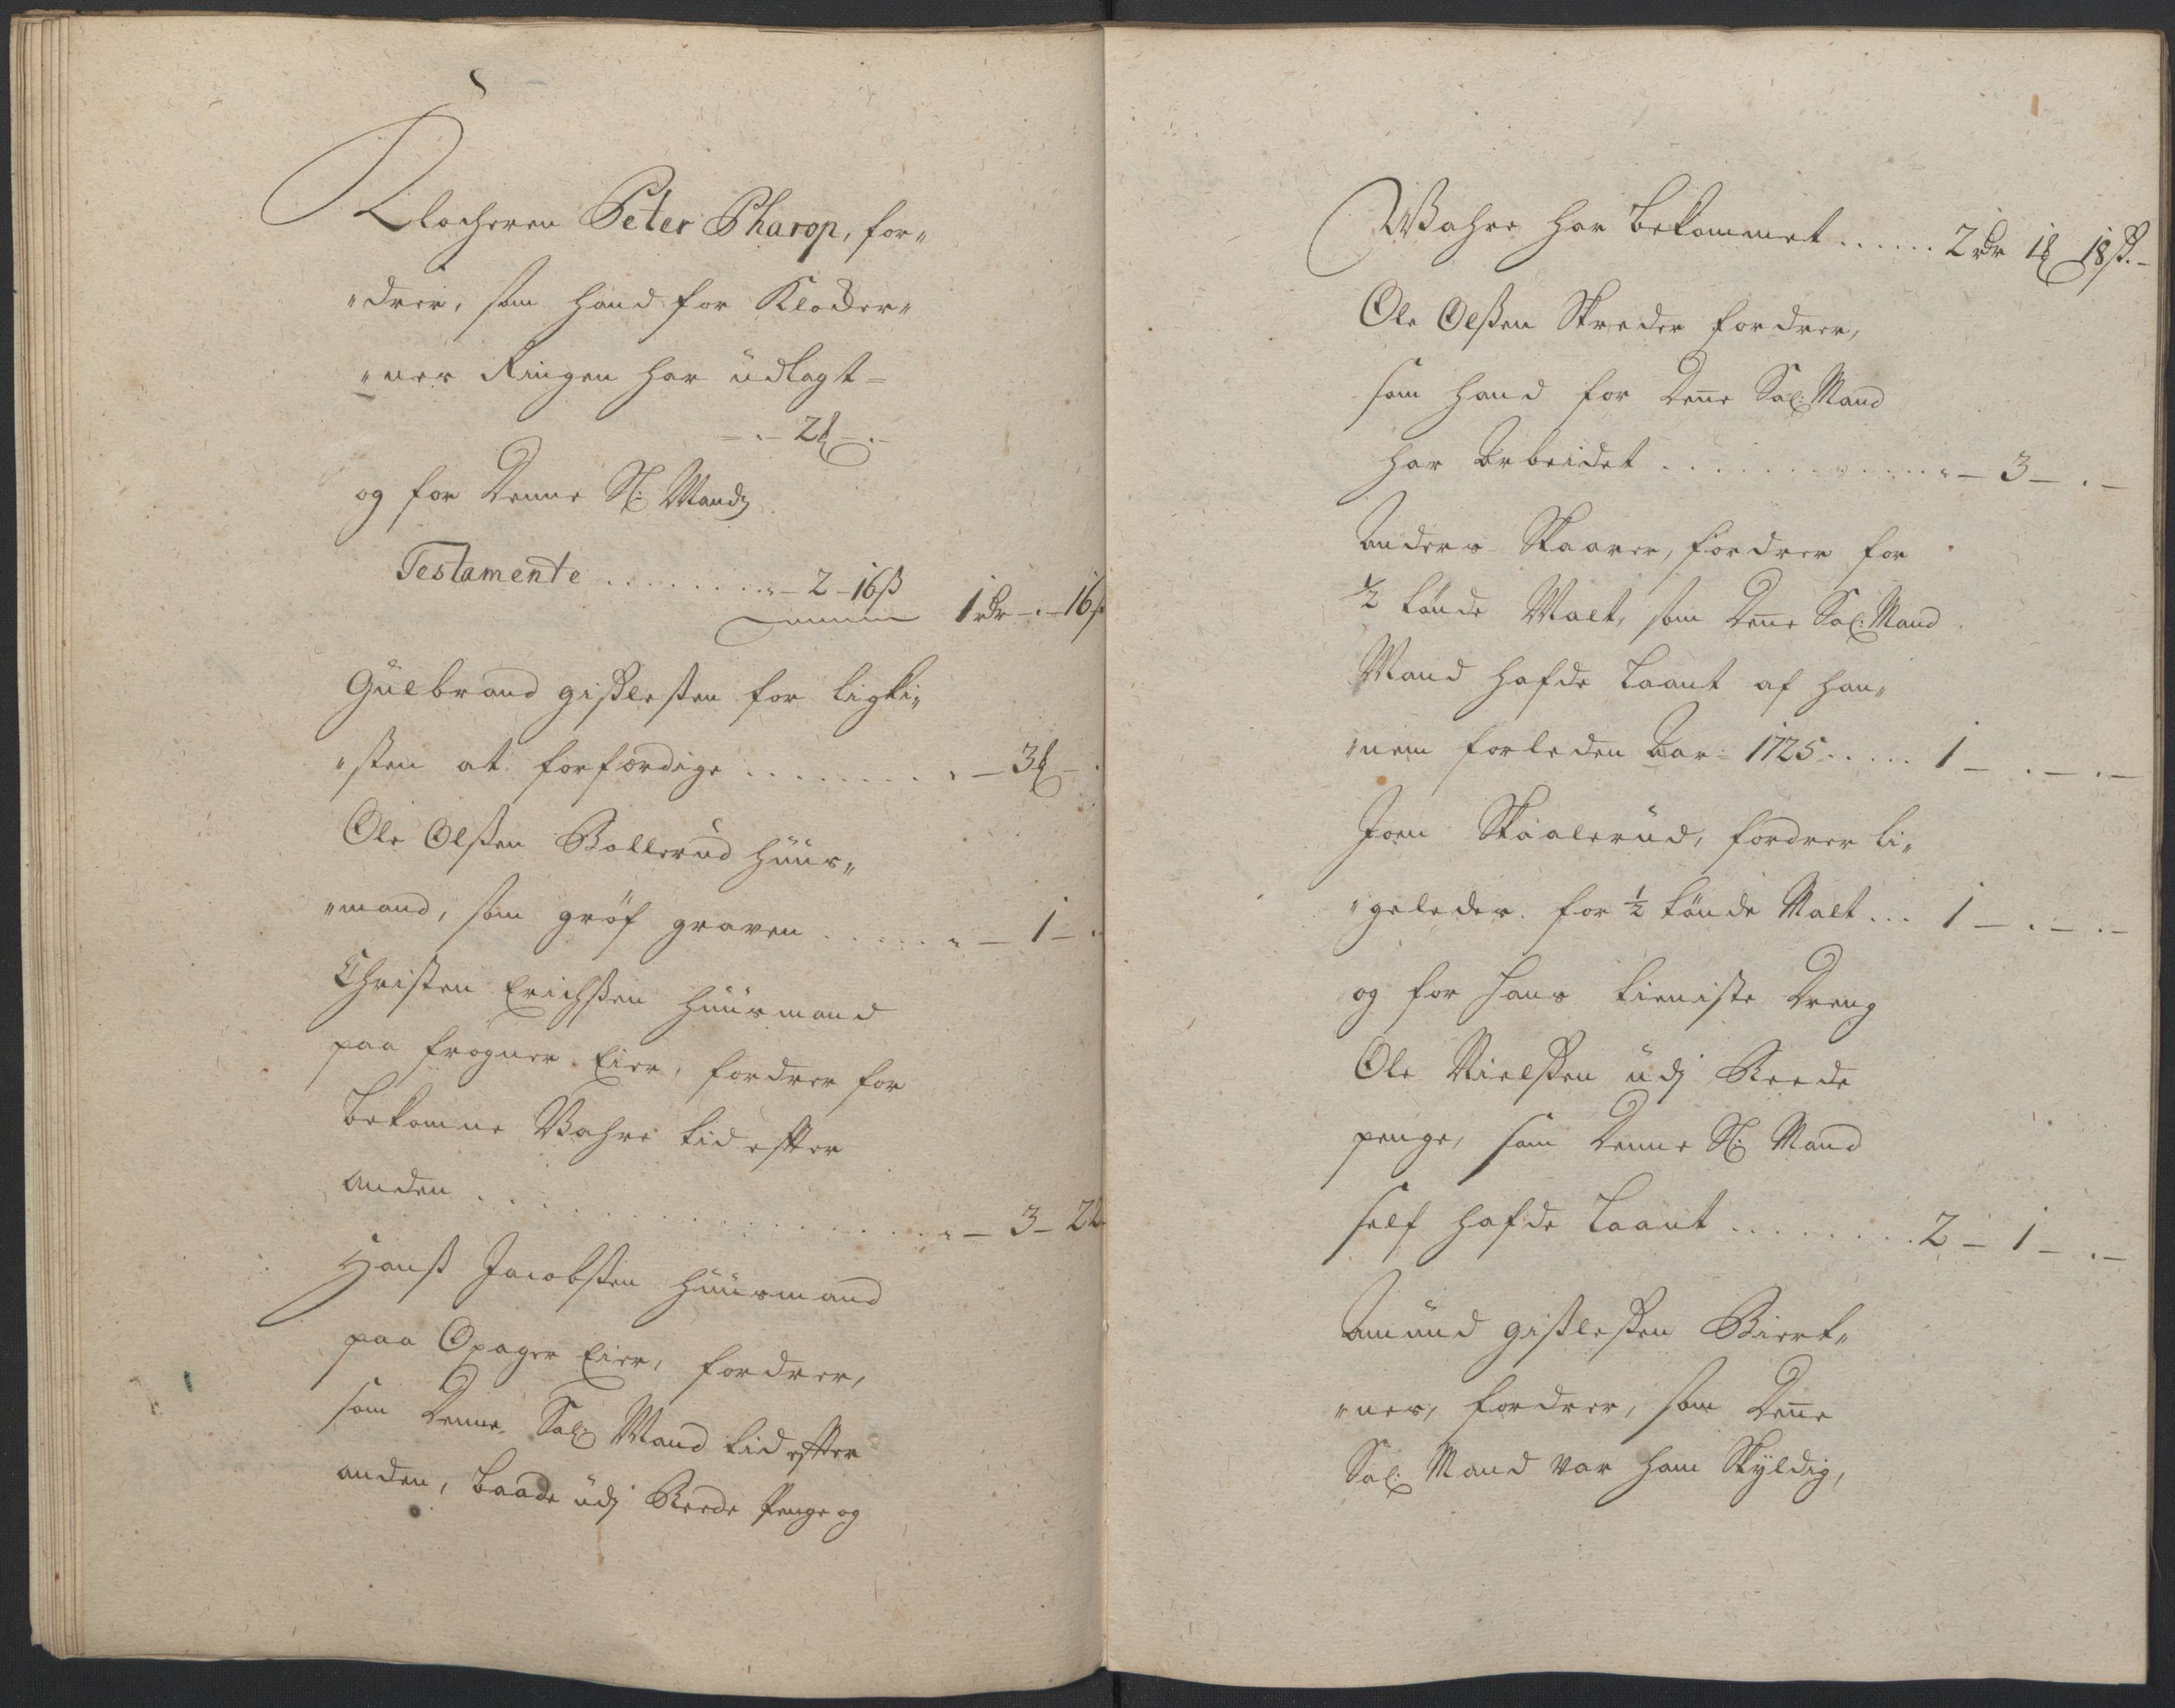 Klocheren Peter Pharop, for„
„drer, som hand for Klocker„
„ner Ringen har üdlagt –
– . – 2 ₰ – . –
og for Denne Sl: Mandz
Testamente . . . . . . . . „ – 2 – 16 ß
1 rdr – . – 16 ß
Gulbrand gißleßen for ligki„
„sten at forfærdige . . . . . . . . „ – 3 ₰ – .
Ole Olßen Bollerud Huus„
„mand, som gröf graven . . . . . . „ – 1 – .
Christen Erichßen Huusmand
paa frogner Eier, fordrer for
bekomne Wahre tid efter
anden . . . . . . . . . . . . . . . . „ – 3 – 22
Hanß Jacobßen Huusmand
paa Opager Eier, fordrer,
som Denne Sal: Mand tid effter
anden, baade üdj Reede Penge og
Wahre har bekommet . . . . . . 2 rdr 1 ₰ 18 ß. –
Ole Olßen Skreder fordrer,
som hand for Dene Sal: Mand
har Arbeidet . . . . . . . . . . . . . „ – 3 – . –
Anders Skaarer, fordrer for
½ tönde Malt, som Dene Sal: Mand
Mand hafde laant af han„
„nem forleden Aar: 1725 . . . . . 1 – . – . –
Joen Skaalerud, fordrer li„
„geledes for ½ tönde Malt . . . 1 – . – . –
og for hans tieniste Dreng
Ole Nielßen üdj Reede
penge, som Denne Sl: Mand
self hafde laant . . . . . . . . . 2 – 1 – . –
Amund gißleßen Biert„
„nes, fordrer, som Dene
Sal: Mand var ham Skyldig,